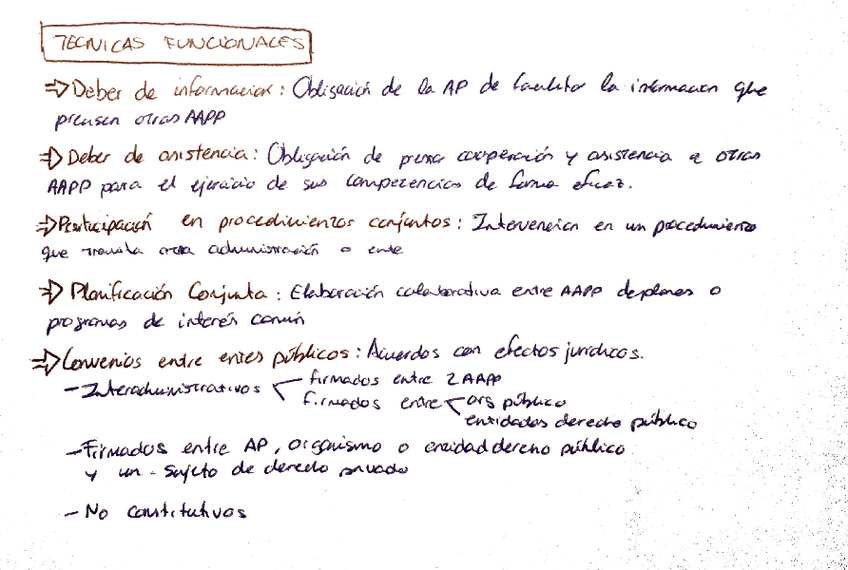 TECNICAS FUNCIONALES
⇒ Deber de información: Obligación de la AP de facilitar la información que
precisen otras AAPP
⇒ Deber de asistencia: Obligación de prestar cooperación y asistencia a otras
AAPP para el ejercicio de sus competencias de forma eficaz.
⇒ Participación en procedimientos conjuntos: Intervención en un procedimiento
que tramita otra administración o ente
⇒ Planificación Conjunta: Elaboración colaborativa entre AAPP de planes o
programas de interés común
⇒ Convenios entre entes públicos: Acuerdos con efectos jurídicos.
- Interadministrativos firmados entre 2 AAPP
firmados entre org público
entidades derecho público
- Firmados entre AP, organismo o entidad derecho público
y un sujeto de derecho privado
- No constitutivos